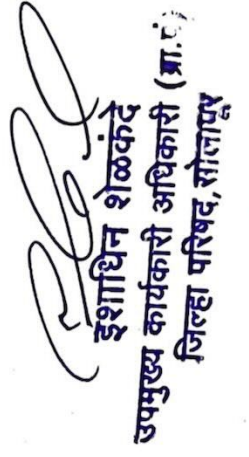 इशाधिन शेळकंदे
उपमुख्य कार्यकारी अधिकारी (ग्रा.पं)
जिल्हा परिषद, सोलापूर